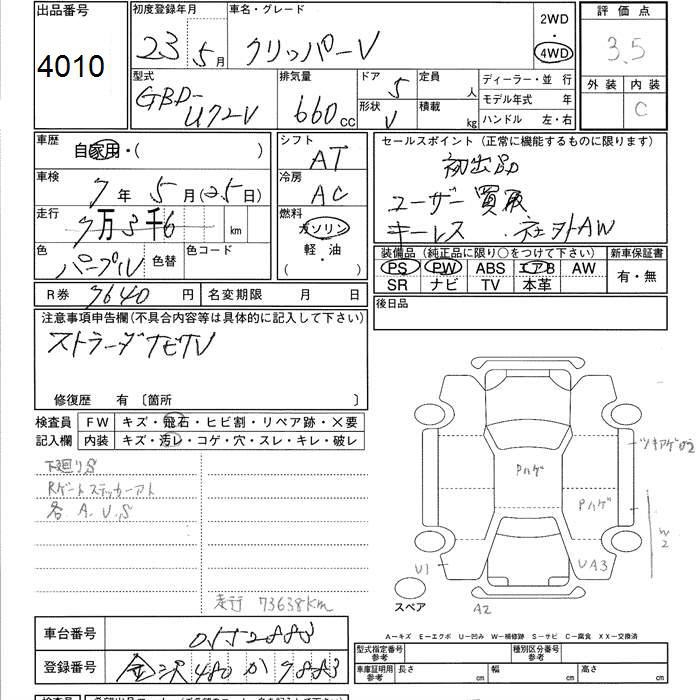 出品番号
4010
初度登録年月
23年5月
車名・グレード
クリッパーV
2WD
4WD
評価点
3.5
外装 内装
C
型式
GBD-
U72V
排気量
660cc
ドア 5
形状 V
定員 人
積載 kg
ディーラー・並行
モデル年式 年
ハンドル 左・右
車歴
自家用・( )
車検
7年5月(25日)
走行
7万3千6 km
色
パープル
色替
色コード
シフト
AT
冷房
AC
燃料
ガソリン
軽・油
( )
セールスポイント(正常に機能するものに限ります)
初出品
ユーザー買取
キーレス 社外AW
装備品(純正品に限り○をつけて下さい)
PS PW ABS エアB AW
SR ナビ TV 本革
新車保証書
有・無
R券 7640円
名変期限 月 日
後日品
注意事項申告欄(不具合内容等は具体的に記入して下さい)
ストラーダナビTV
修復歴 有〔箇所 〕
検査員
記入欄
FW キズ・飛石・ヒビ割・リペア跡・×要
内装 キズ・汚レ・コゲ・穴・スレ・キレ・破レ
下廻りS
Rゲートステッカーアト
各 A.U.S
走行 73638Km
Pハゲ
Pハゲ
ツキアゲU2
W2
U1
UA3
A2
スペア
A-キズ E-エクボ U-凹み W-補修跡 S-サビ C-腐食 XX-交換済
車台番号
登録番号
金沢480か7883
型式指定番号
参考
種別区分番号
参考
車庫証明用
参考
長さ cm
幅 cm
高さ cm